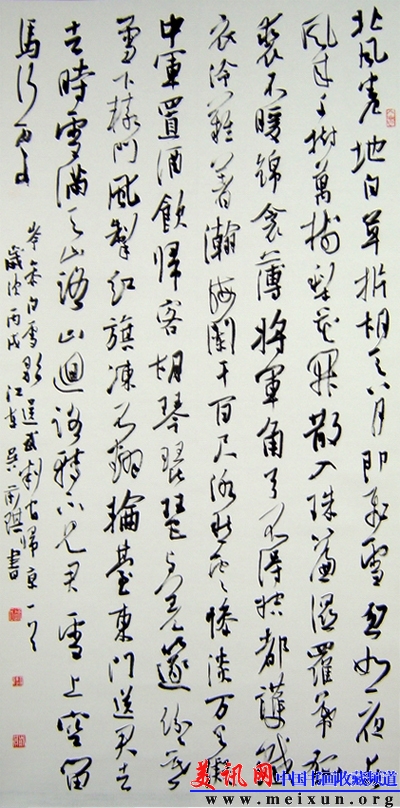 北风卷地白草折胡天八月即飞雪忽如一夜春
风来千树万树梨花开散入珠帘湿罗幕狐
裘不暖锦衾薄将军角弓不得控都护铁
衣冷难着瀚海阑干百尺冰愁云惨淡万里凝
中軍置酒飲歸客胡琴琵琶与羌笛纷纷暮
雪下辕门風掣红旗凍不翻輪臺東門送君去
去時雪滿天山路山迴路轉不見君雪上空留
馬行處
岑参白雪歌送武判官歸京一首
歲次丙戌 江東吴 琪書
美讯网 中国书画收藏频道
www.meixun.org